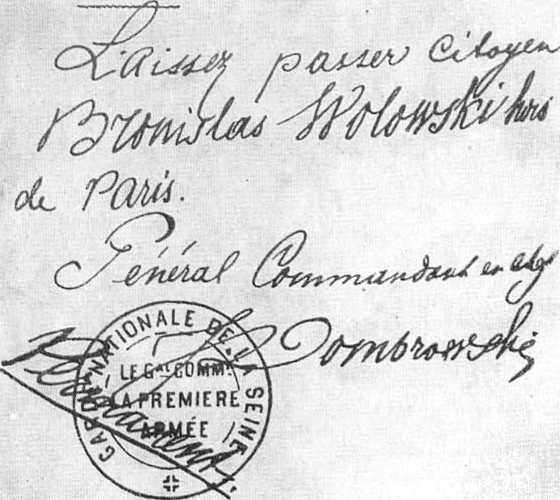 Laissez passer citoyen
Bronislas Wolowski hors
de Paris.
Général Commandant en chef
Dombrowski
Permanent.
GARDE NATIONALE DE LA SEINE
LE GAL COMMT
LA PREMIERE
ARMÉE